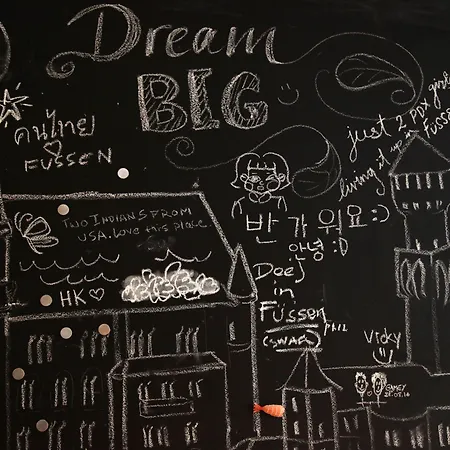 Dream
BIG
:)
คนไทย
♡
FUSSEN
just 2 ppx girls
living it up in Fussen
TWO INDIANS FROM
USA. Love this place.
HK ♡
반가워요 :)
안녕 :D
Deej
in
Füssen
(SWAG)
Vicky